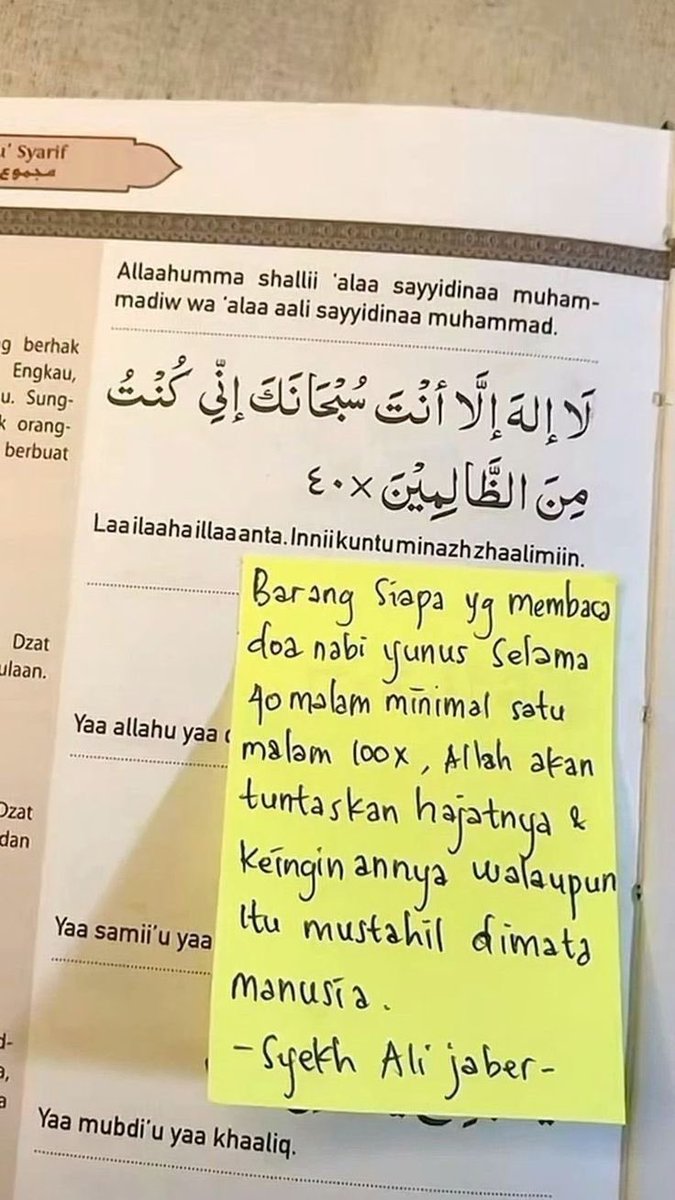 u' Syarif
مجموع
Allaahumma shallii 'alaa sayyidinaa muham-
madiw wa 'alaa aali sayyidinaa muhammad.
g berhak
Engkau,
u. Sung-
k orang-
berbuat
لَا إِلهَ إِلَّا أَنْتَ سُبْحَانَكَ إِنِّي كُنْتُ
مِنَ الظَّالِمِيْنَ ×٤٠
Laa ilaaha illaa anta. Innii kuntu minazh zhaalimiin.
Dzat
ulaan.
Yaa allahu yaa
Dzat
dan
Yaa samii'u yaa
d-
a,
a
Yaa mubdi'u yaa khaaliq.
Barang siapa yg membaca
doa nabi yunus selama
40 malam minimal satu
malam 100x, Allah akan
tuntaskan hajatnya &
keinginannya walaupun
itu mustahil dimata
manusia.
-Syekh Ali jaber-